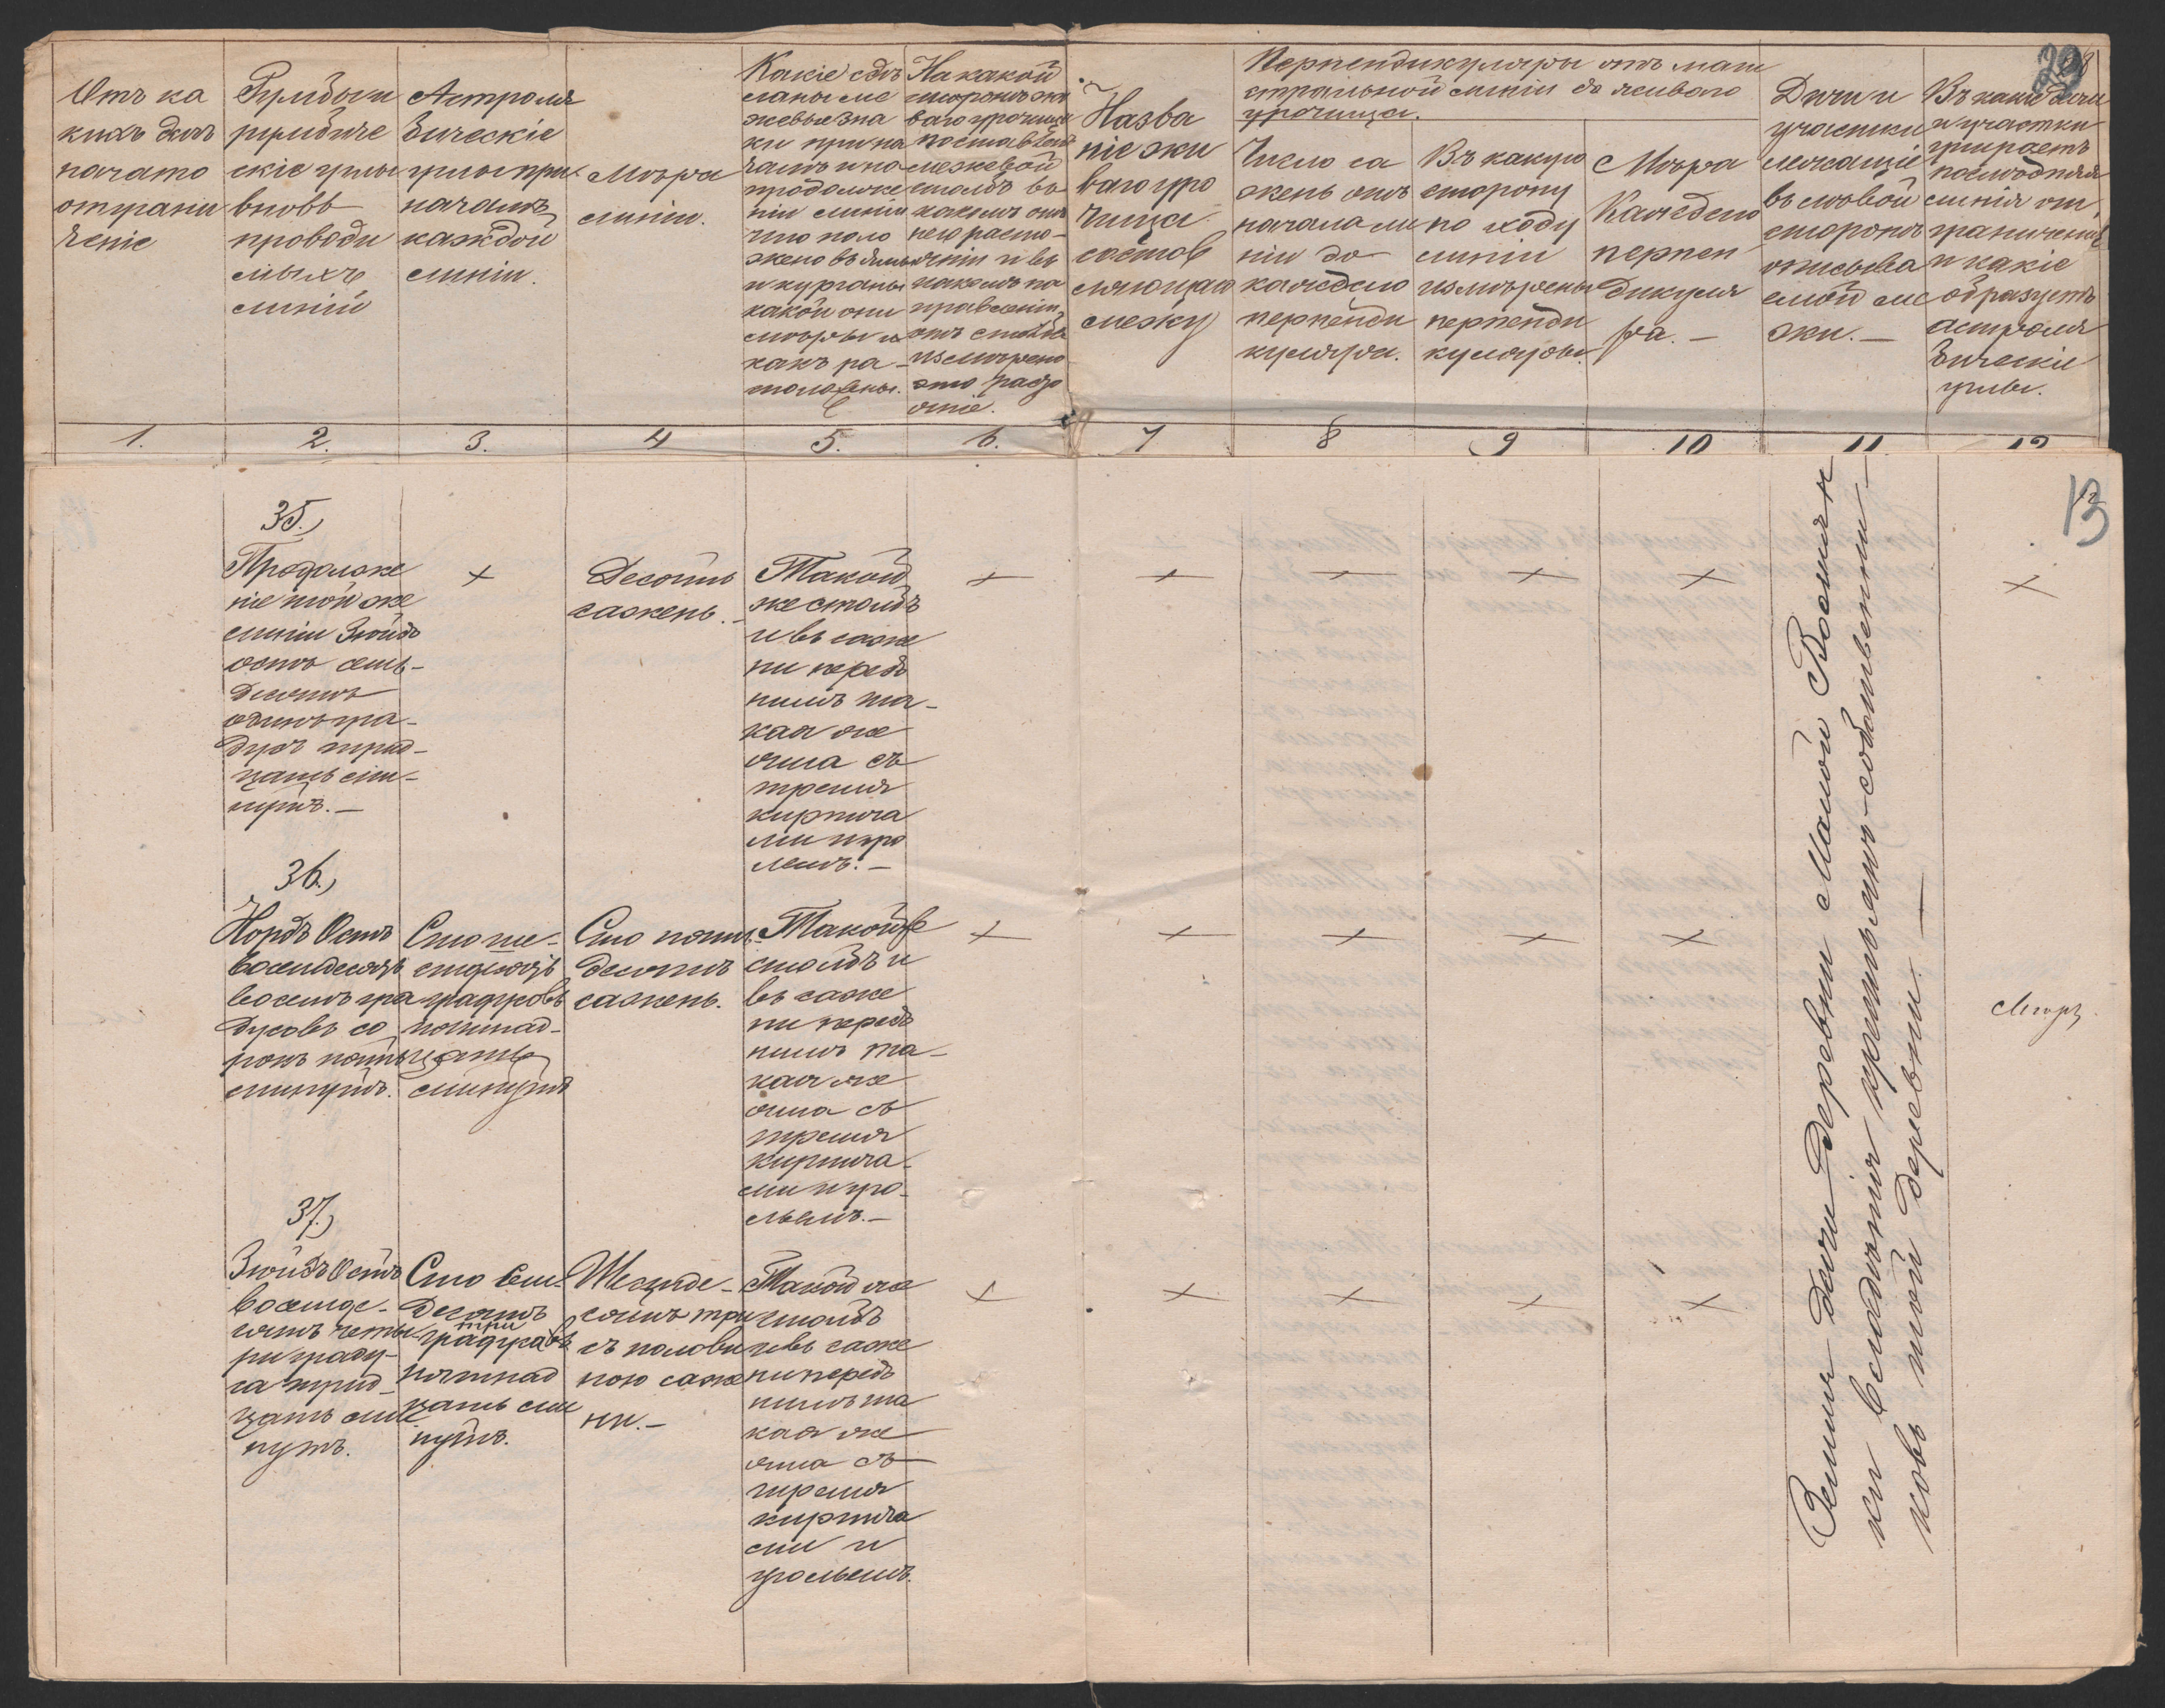 Отъ ка
кихъ дачъ
начато
ограни
ченіе
Румбы и
румбиче
скіе углы
вновь
проводи
мыхъ
линій
Астроля
бическіе
углы при
началѣ
каждой
линіи.
Мѣра
линіи.
Какіе сдѣ
ланы ме
жевые зна
ки при на
чалѣ и на
продолже
ніи линіи
что поло
жено въ ямы
и курганы
какой они
мѣры и
какъ ра-
положены.
На какой
сторонѣ жи
ваго урочища
поставленъ
межевой
столбъ въ
какомъ отъ
него растоя-
яніи и въ
какомъ на
правленіи
отъ столба
измѣрено
это разсто
яніе.
Назва
ніе жи
ваго уро
чища
состав
ляющаго
межу
Перпендикуляры отъ маги
стральной линіи до живаго
урочища.
Число са
жень отъ
начала ли
ніи до
каждаго
перпенди
куляра.
Въ какую
сторону
по ходу
линіи
измѣрены
перпенди
куляры.
Мѣра
каждаго
перпен
дикуля
ра. —
Дачи и
участки
лежащіе
въ лѣвой
сторонѣ
описыва
емой ме
жи. —
Въ какіе дачи
и участки
упираетъ
послѣдняя
линія от
граниченія
и какіе
образуетъ
астроля
бическіе
углы.
28
1. 2. 3. 4 5. 6. 7 8 9 10 11 12
13
35.)
Продолже
ніе той же
линіи Зюйдъ
остъ семь-
десятъ
одинъ гра-
дусъ трид-
цать ми-
нутъ. —
×
Десять
сажень. —
Такой
же столбъ
и въ саже
ни передъ
нимъ та-
кая же
яма съ
тремя
кирпича
ми и уго
лемъ. —
× × × × × ×
36.)
Нордъ Остъ
восемдесятъ
восемь гра
дусовъ со
рокъ пять
минутъ.
Сто ше-
стдесятъ
градусовъ
пятнад-
цать
минутъ
Сто пять-
десятъ
сажень.
Такой же
столбъ и
въ саже
ни передъ
нимъ та-
кая же
яма съ
тремя
кирпича-
ми и уго-
льемъ. —
× × × × ×
37.)
Зюйдъ Остъ
восемде-
сятъ четы-
ри граду-
са трид-
цать ми
нутъ.
Сто сем-
десятъ
три
градусовъ
пятнад
цать ми
нутъ.
Шестьде-
сятъ три
съ полови
ною саже
ни. —
Такой же
столбъ
и въ саже
ни передъ
нимъ та
кая же
яма съ
тремя
кирпича
ми и
угольемъ.
× × × × ×
Земля дачи деревни Малой
ки владѣнія крестьянъ-собственни —
ковъ той деревни. —